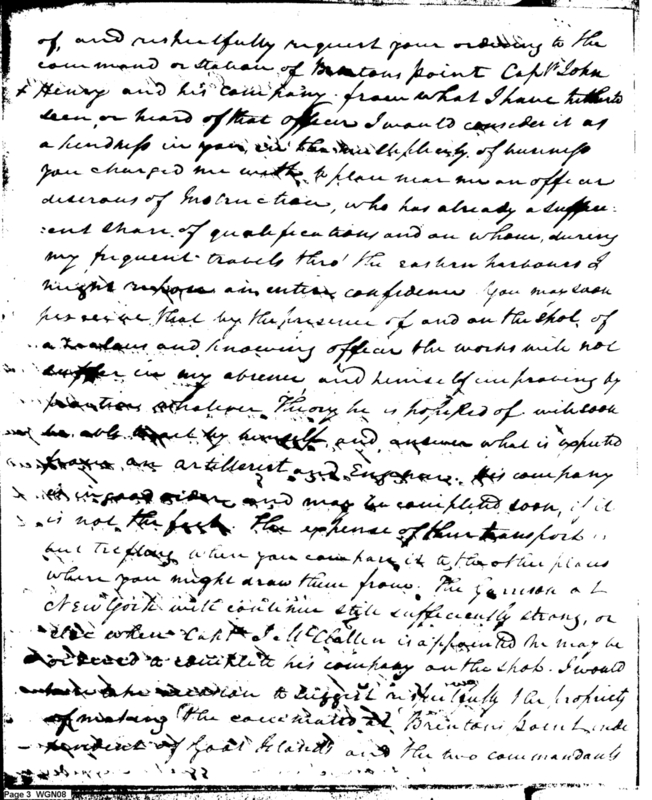 of, and respectfully request your ordering to the
command or station of Brentons point Capt. John
+ Henry and his company. from what I have hitherto
seen, or heard of that officer I would consider it as
a kindness in you, in the multiplicity of business
you charged me with, to place near me an officer
desirous of Instruction, who has already a suffici:
:ent share of qualifications and on whom, during
my frequent travels thro' the eastern harbours I
might repose an entire confidence. You may soon
perceive that by the presence of and on the spot of
a zealous and knowing officer the works will not
suffer in my absence and himself improving by
practice whatever Theory he is possessed of will soon
be able to act by himself and answer what is expected
from an artillerist and Engineer. His company
is in good order and may be completed soon, if it
is not the fact. The expense of their transport is
but trifling when you compare it to the other places
where you might draw them from. The Garrison at
New York will continue still sufficiently strong, or
else when Capt. J. McClallen is appointed he may be
ordered to complete his company on the spot. I would
to suggest respectfully the propriety
of making the command at Brentons point inde
pendent of Goat Island and the two commandants
Page 3 WGN08